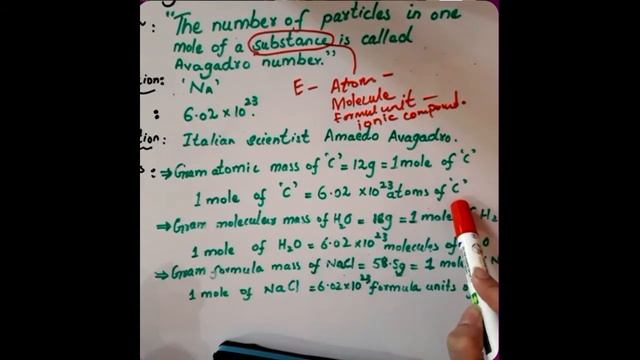 : "The number of particles in one
mole of a substance is called
Avagadro number."
tion: 'NA'
E - Atom -
Molecule
Formul unit -
ionic compound.
: 6.02 × 10²³
tion: Italian scientist Amaedo Avagadro.
: ⇒ Gram atomic mass of 'C' = 12g = 1 mole of 'C'
1 mole of 'C' = 6.02 × 10²³ atoms of 'C'
⇒ Gram molecular mass of H₂O = 18g = 1 mole of H₂
1 mole of H₂O = 6.02 × 10²³ molecules of O
⇒ Gram formula mass of NaCl = 58.5g = 1 mole N
1 mole of NaCl = 6.02 × 10²³ formula units o